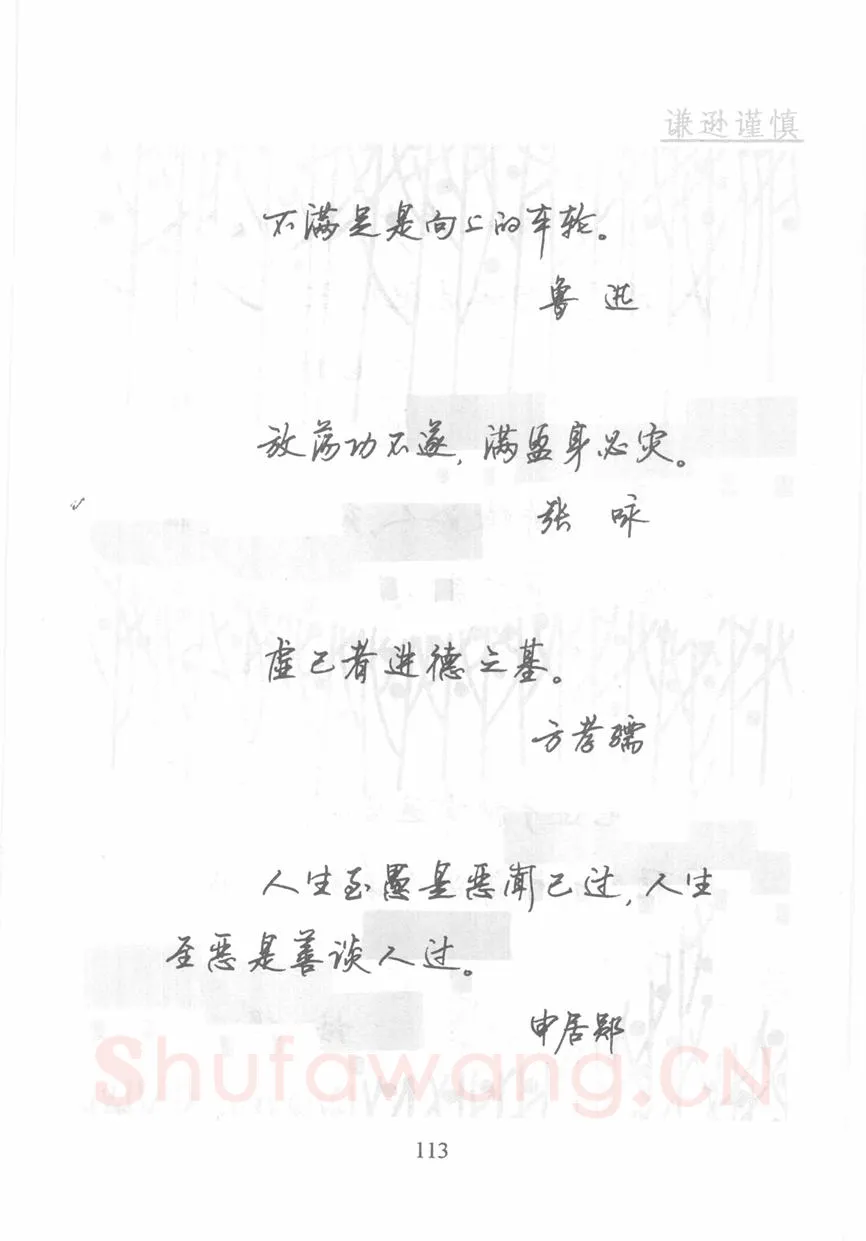 谦逊谨慎
不满足是向上的车轮。
鲁迅
放荡功不遂,满盈身必灾。
张咏
虚己者进德之基。
方孝孺
人生至愚是恶闻己过,人生
至恶是善谈人过。
申居郧
Shufawang.CN
113